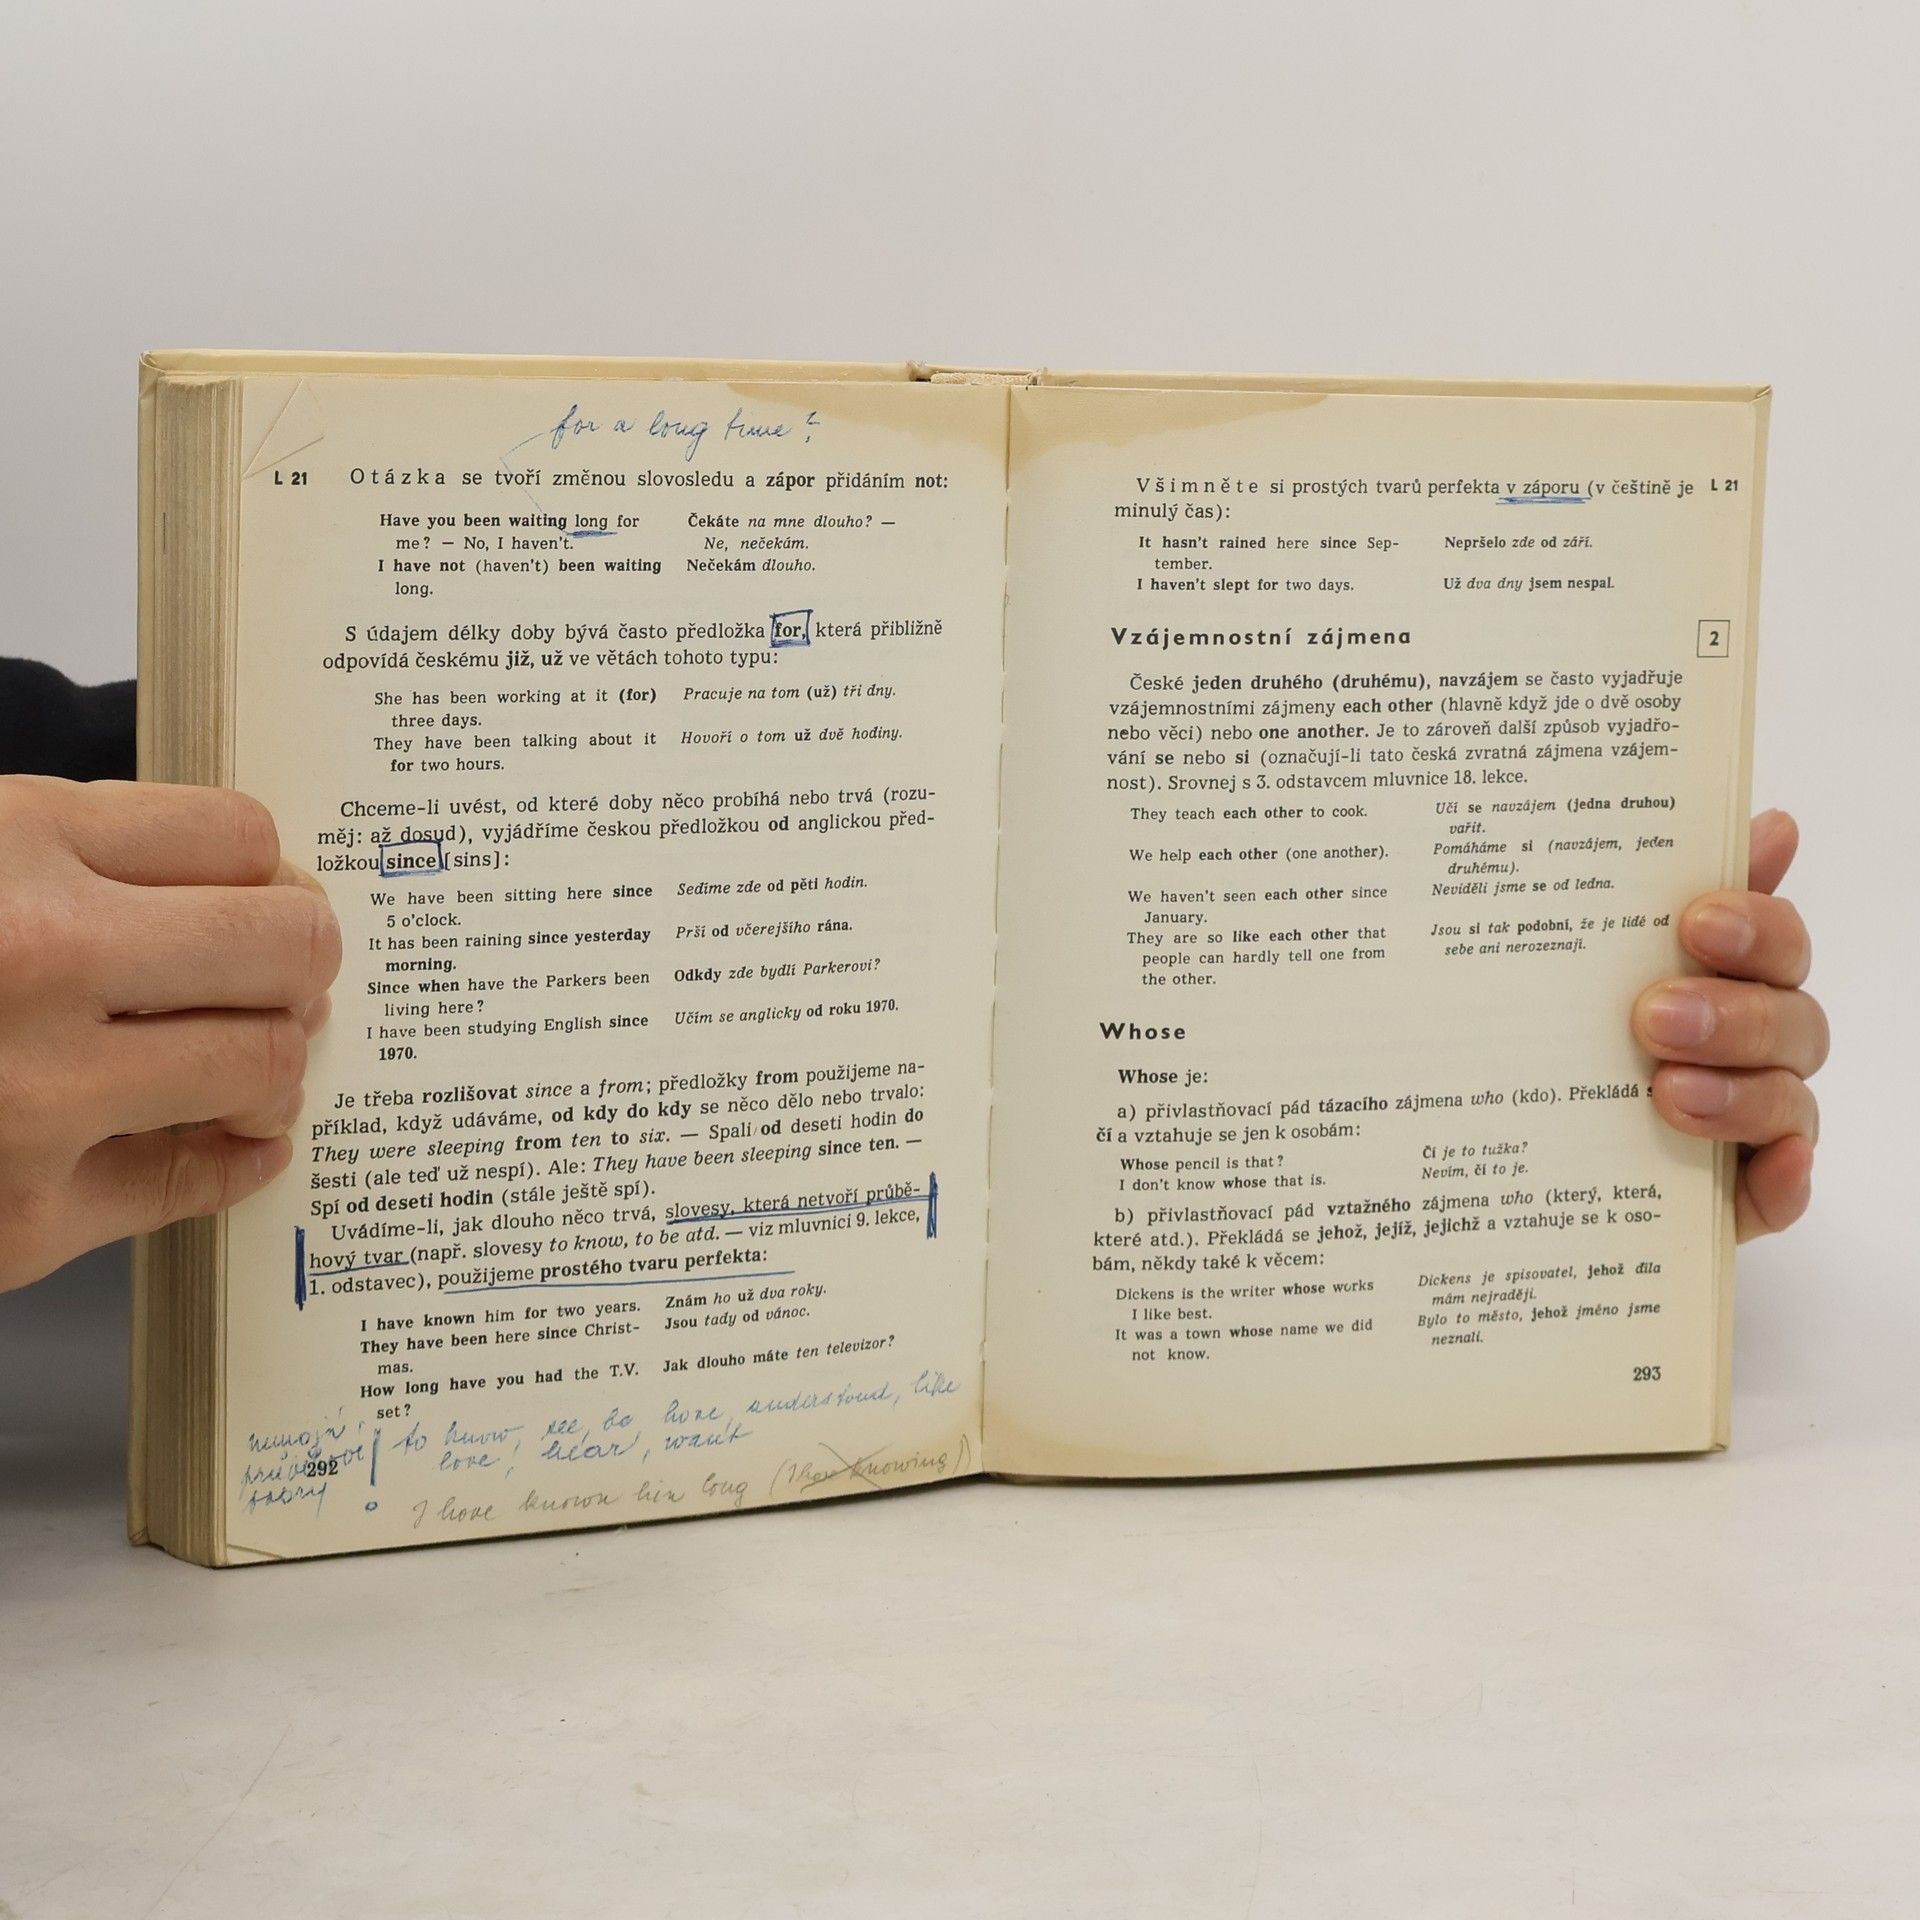 for a long time?
L 21 Otázka se tvoří změnou slovosledu a zápor přidáním not:
Have you been waiting long for
me? — No, I haven't.
Čekáte na mne dlouho? —
Ne, nečekám.
I have not (haven't) been waiting
long.
Nečekám dlouho.
S údajem délky doby bývá často předložka for, která přibližně
odpovídá českému již, už ve větách tohoto typu:
She has been working at it (for)
three days.
Pracuje na tom (už) tři dny.
They have been talking about it
for two hours.
Hovoří o tom už dvě hodiny.
Chceme-li uvést, od které doby něco probíhá nebo trvá (rozu-
měj: až dosud), vyjádříme českou předložkou od anglickou před-
ložkou since [sins]:
We have been sitting here since
5 o'clock.
Sedíme zde od pěti hodin.
It has been raining since yesterday
morning.
Prší od včerejšího rána.
Since when have the Parkers been
living here?
Odkdy zde bydlí Parkerovi?
I have been studying English since
1970.
Učím se anglicky od roku 1970.
Je třeba rozlišovat since a from; předložky from použijeme na-
příklad, když udáváme, od kdy do kdy se něco dělo nebo trvalo:
They were sleeping from ten to six. — Spali od deseti hodin do
šesti (ale teď už nespí). Ale: They have been sleeping since ten. —
Spí od deseti hodin (stále ještě spí).
Uvádíme-li, jak dlouho něco trvá, slovesy, která netvoří průbě-
hový tvar (např. slovesy to know, to be atd. — viz mluvnici 9. lekce,
1. odstavec), použijeme prostého tvaru perfekta:
I have known him for two years.
Znám ho už dva roky.
They have been here since Christ-
mas.
Jsou tady od vánoc.
How long have you had the T.V.
set?
Jak dlouho máte ten televizor?
to know, see, be, have, understand, like
love, hear, want
292
I have known him long (I have knowing)
Všimněte si prostých tvarů perfekta v záporu (v češtině je L 21
minulý čas):
It hasn't rained here since Sep-
tember.
Nepršelo zde od září.
I haven't slept for two days.
Už dva dny jsem nespal.
Vzájemnostní zájmena 2
České jeden druhého (druhému), navzájem se často vyjadřuje
vzájemnostními zájmeny each other (hlavně když jde o dvě osoby
nebo věci) nebo one another. Je to zároveň další způsob vyjadřo-
vání se nebo si (označují-li tato česká zvratná zájmena vzájem-
nost). Srovnej s 3. odstavcem mluvnice 18. lekce.
They teach each other to cook.
Učí se navzájem (jedna druhou)
vařit.
We help each other (one another).
Pomáháme si (navzájem, jeden
druhému).
We haven't seen each other since
January.
Neviděli jsme se od ledna.
They are so like each other that
people can hardly tell one from
the other.
Jsou si tak podobní, že je lidé od
sebe ani nerozeznají.
Whose
Whose je:
a) přivlastňovací pád tázacího zájmena who (kdo). Překládá
čí a vztahuje se jen k osobám:
Whose pencil is that?
Čí je to tužka?
I don't know whose that is.
Nevím, čí to je.
b) přivlastňovací pád vztažného zájmena who (který, která,
které atd.). Překládá se jehož, jejíž, jejichž a vztahuje se k oso-
bám, někdy také k věcem:
Dickens is the writer whose works
I like best.
Dickens je spisovatel, jehož díla
mám nejraději.
It was a town whose name we did
not know.
Bylo to město, jehož jméno jsme
neznali.
293